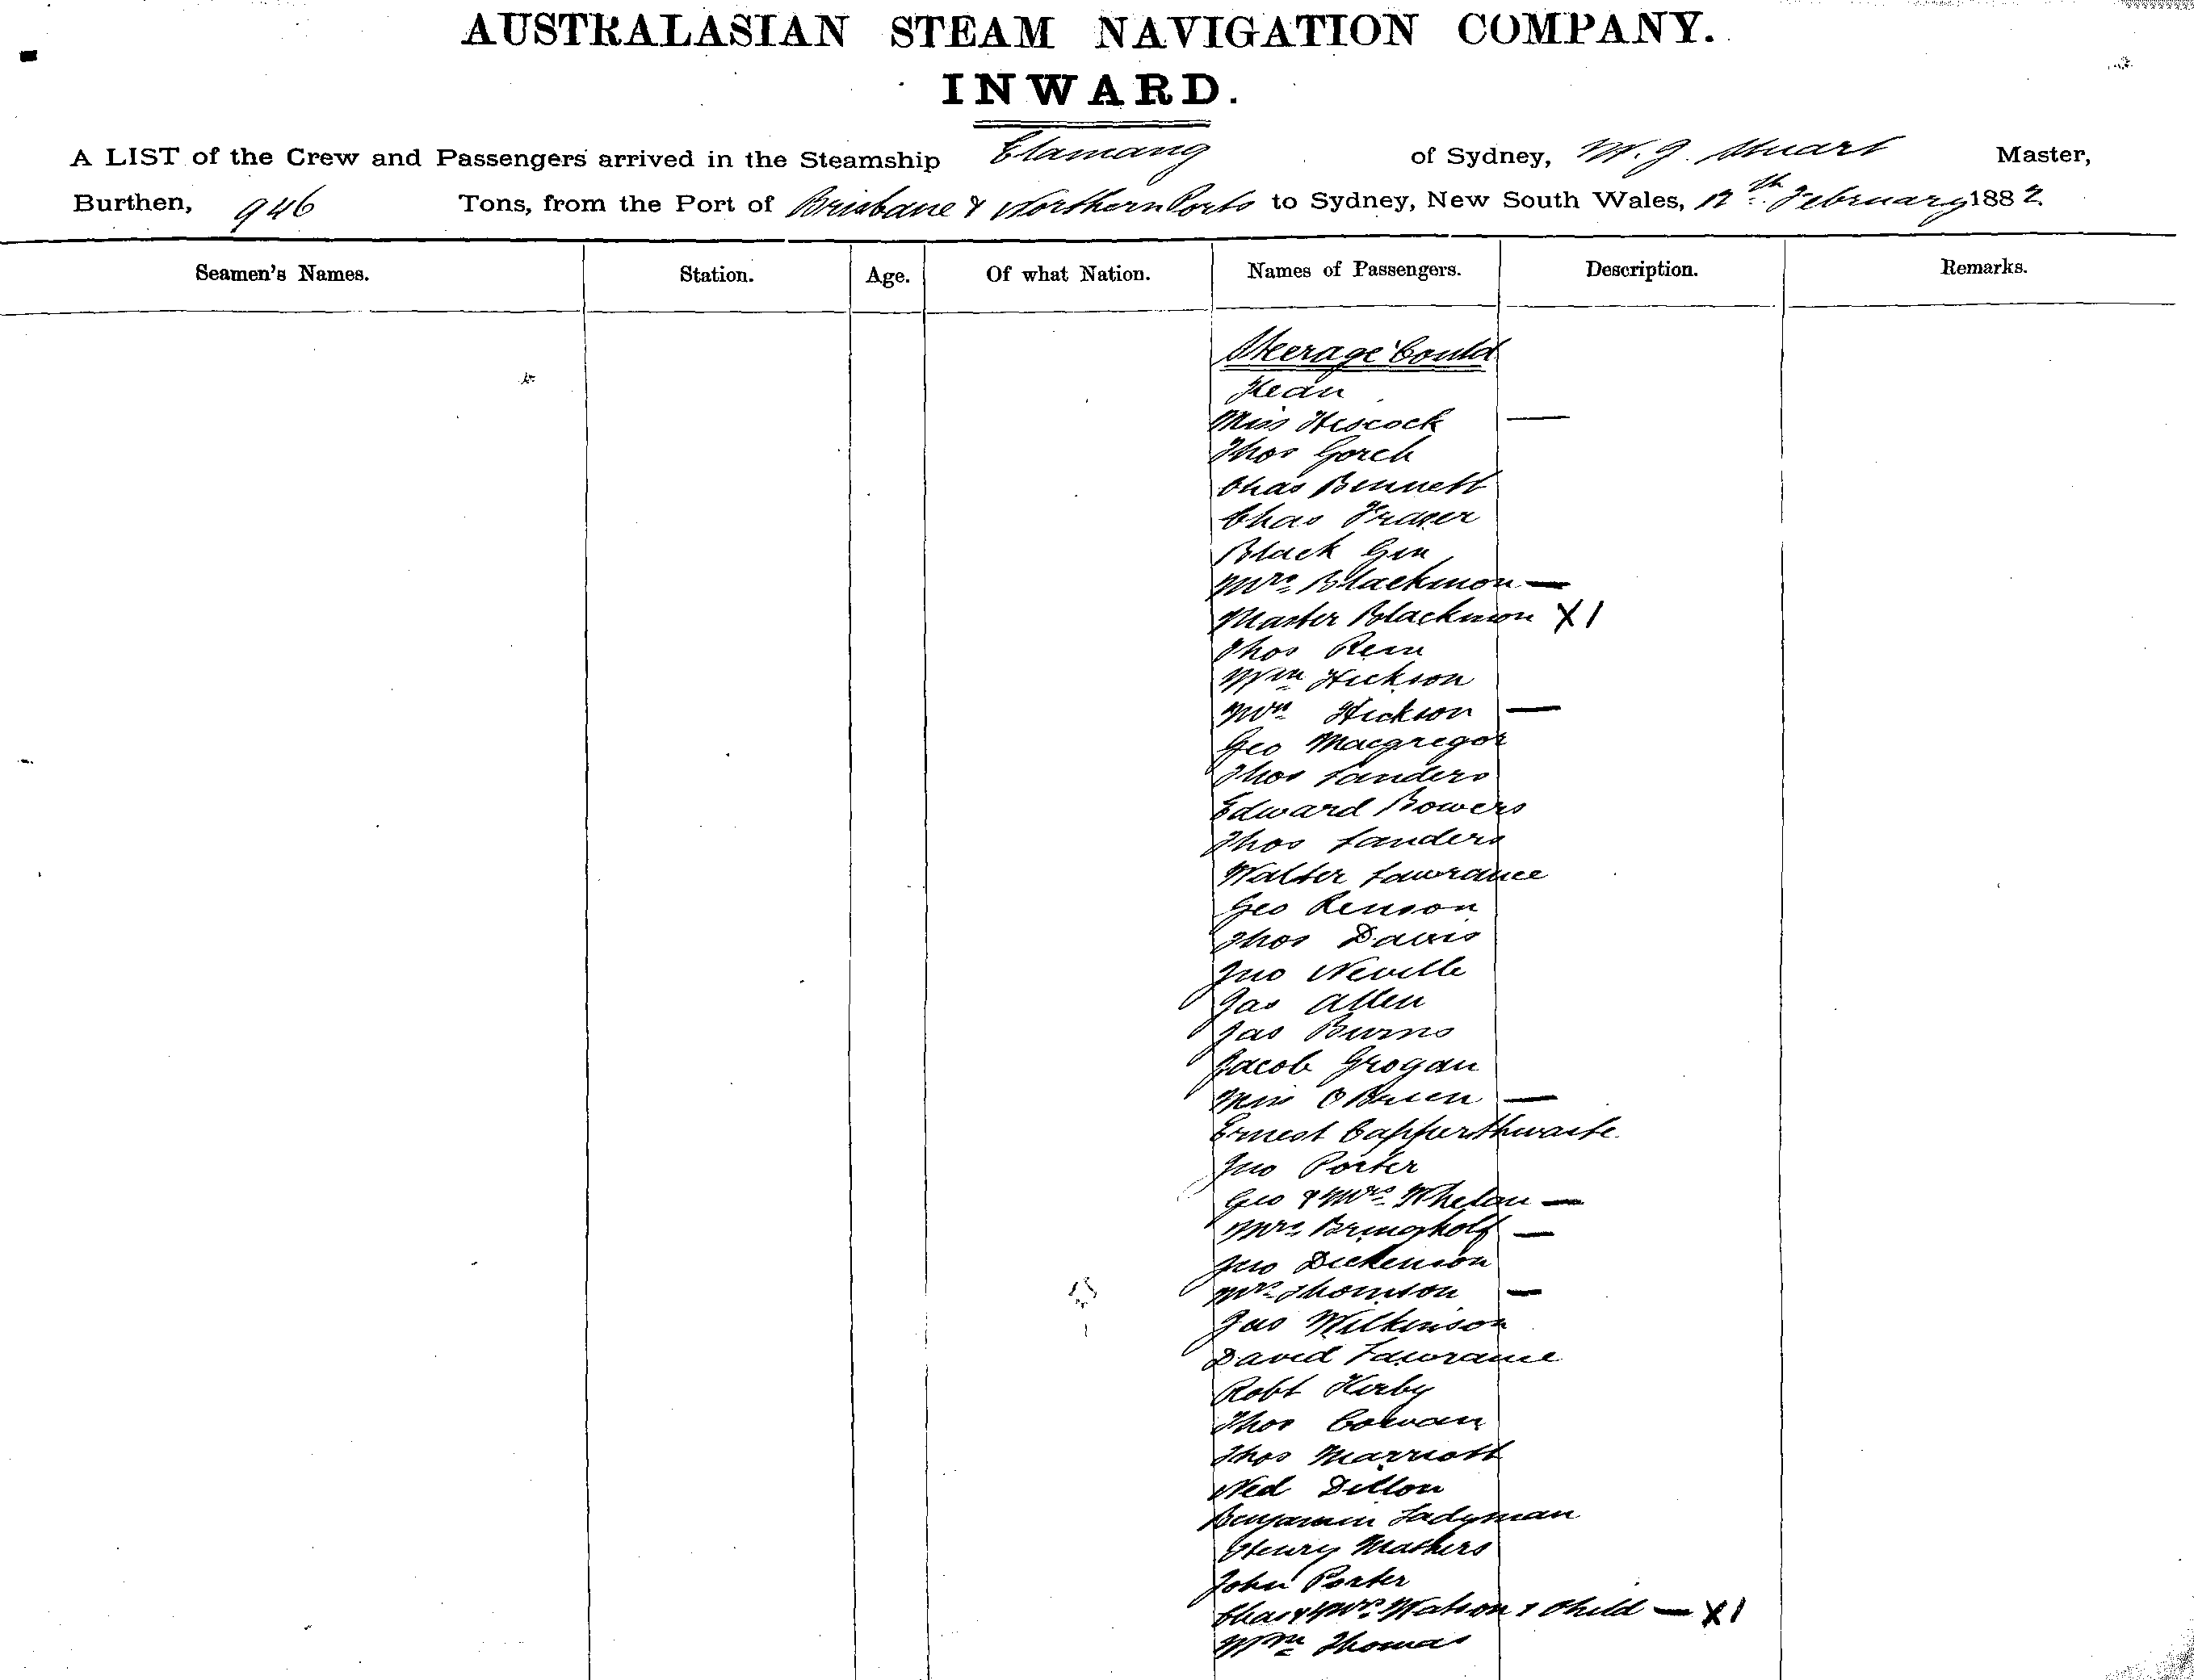 AUSTRALASIAN STEAM NAVIGATION COMPANY.
INWARD.
A LIST of the Crew and Passengers arrived in the Steamship Elamang of Sydney, W. J. Stuart Master,
Burthen, 946 Tons, from the Port of Brisbane & Northern Ports to Sydney, New South Wales, 12th February 1882
Seamen's Names. Station. Age. Of what Nation. Names of Passengers. Description. Remarks.
Steerage Contd
Kean
Miss Hiscock —
Thos Gorch
Chas Bennett
Chas Fraser
Black Gin
Mrs Blackmon —
Master Blackmon X 1
Thos
Wm Hickson
Mrs Hickson —
Geo Macgregor
Thos Sanders
Edward Bowers
Thos Sanders
Walter Lawrance
Geo Renson
Thos Davis
Jno Neville
Jas Allen
Jas Burns
Jacob Grogan
Miss O Brien —
Ernest Capperthwaite
Jno Porter
Geo & Mrs Whelan —
Mrs —
Jno Dickenson
Mrs Thomson —
Jas Wilkinson
David Lawrance
Robt Kirby
Thos Cowan
Thos Marriott
Ned Dillon
Benjamin Ladyman
Henry Mathers
John Porter
Chas & Mrs Watson & Child — X 1
Wm Thomas